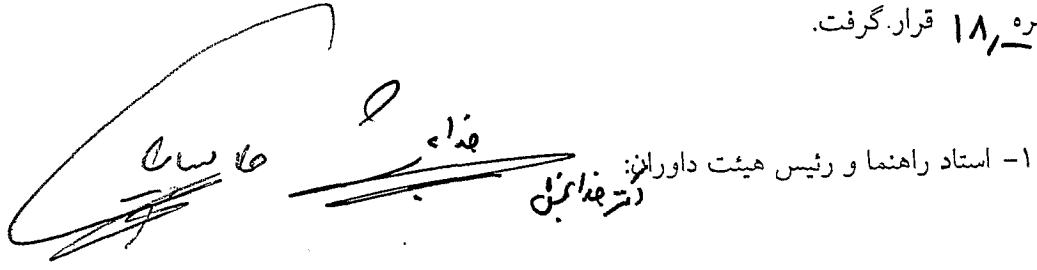 ره ۱۸٫۵ قرار گرفت.
۱- استاد راهنما و رئیس هیئت داوران: دکتر خدابخش